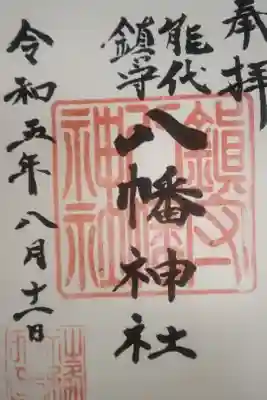 奉拝
能代
鎮守
八幡神社
令和五年八月十一日